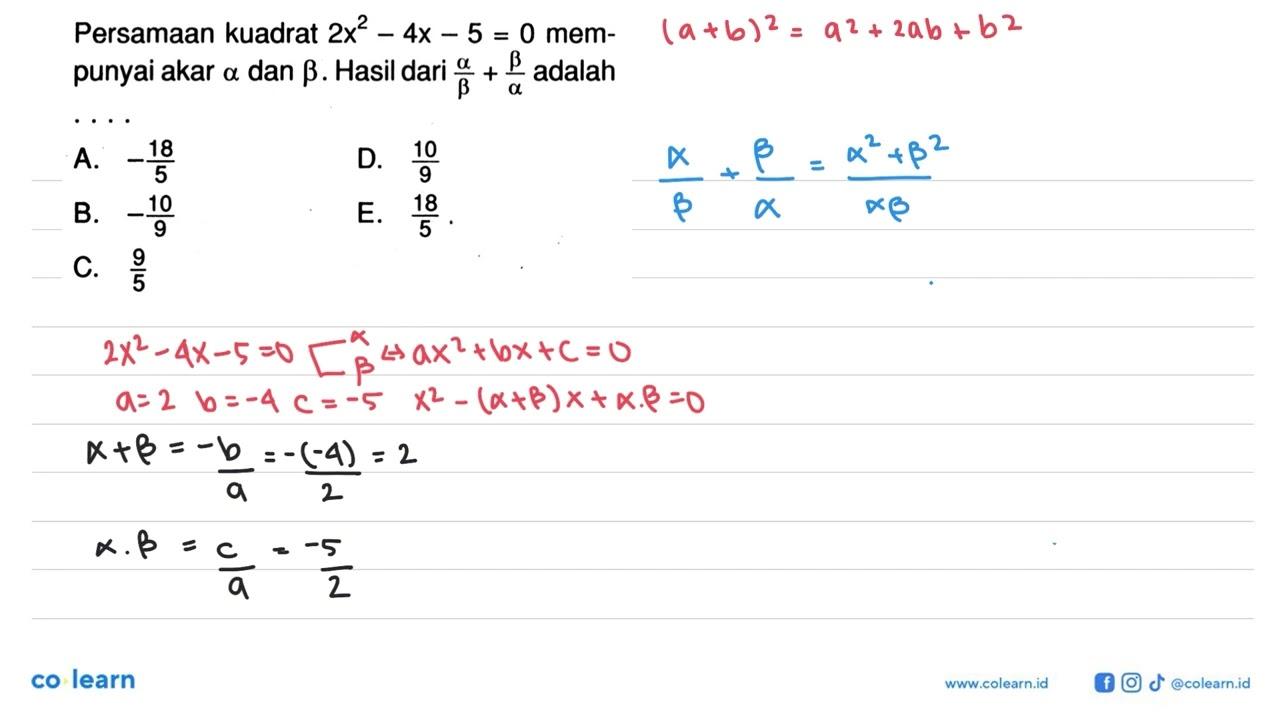 Persamaan kuadrat 2x² – 4x – 5 = 0 mem-
punyai akar α dan β. Hasil dari α/β + β/α adalah
. . . .
A. –18/5
B. –10/9
C. 9/5
D. 10/9
E. 18/5 .
(a+b)² = a² + 2ab + b²
α/β + β/α = α²+β²/αβ
2x²-4x-5=0 [α β ↔ ax²+bx+c=0
a=2 b=-4 c=-5 x² - (α+β)x + α.β=0
α+β = -b/a = -(-4)/2 = 2
α.β = c/a = -5/2
co learn
www.colearn.id @colearn.id